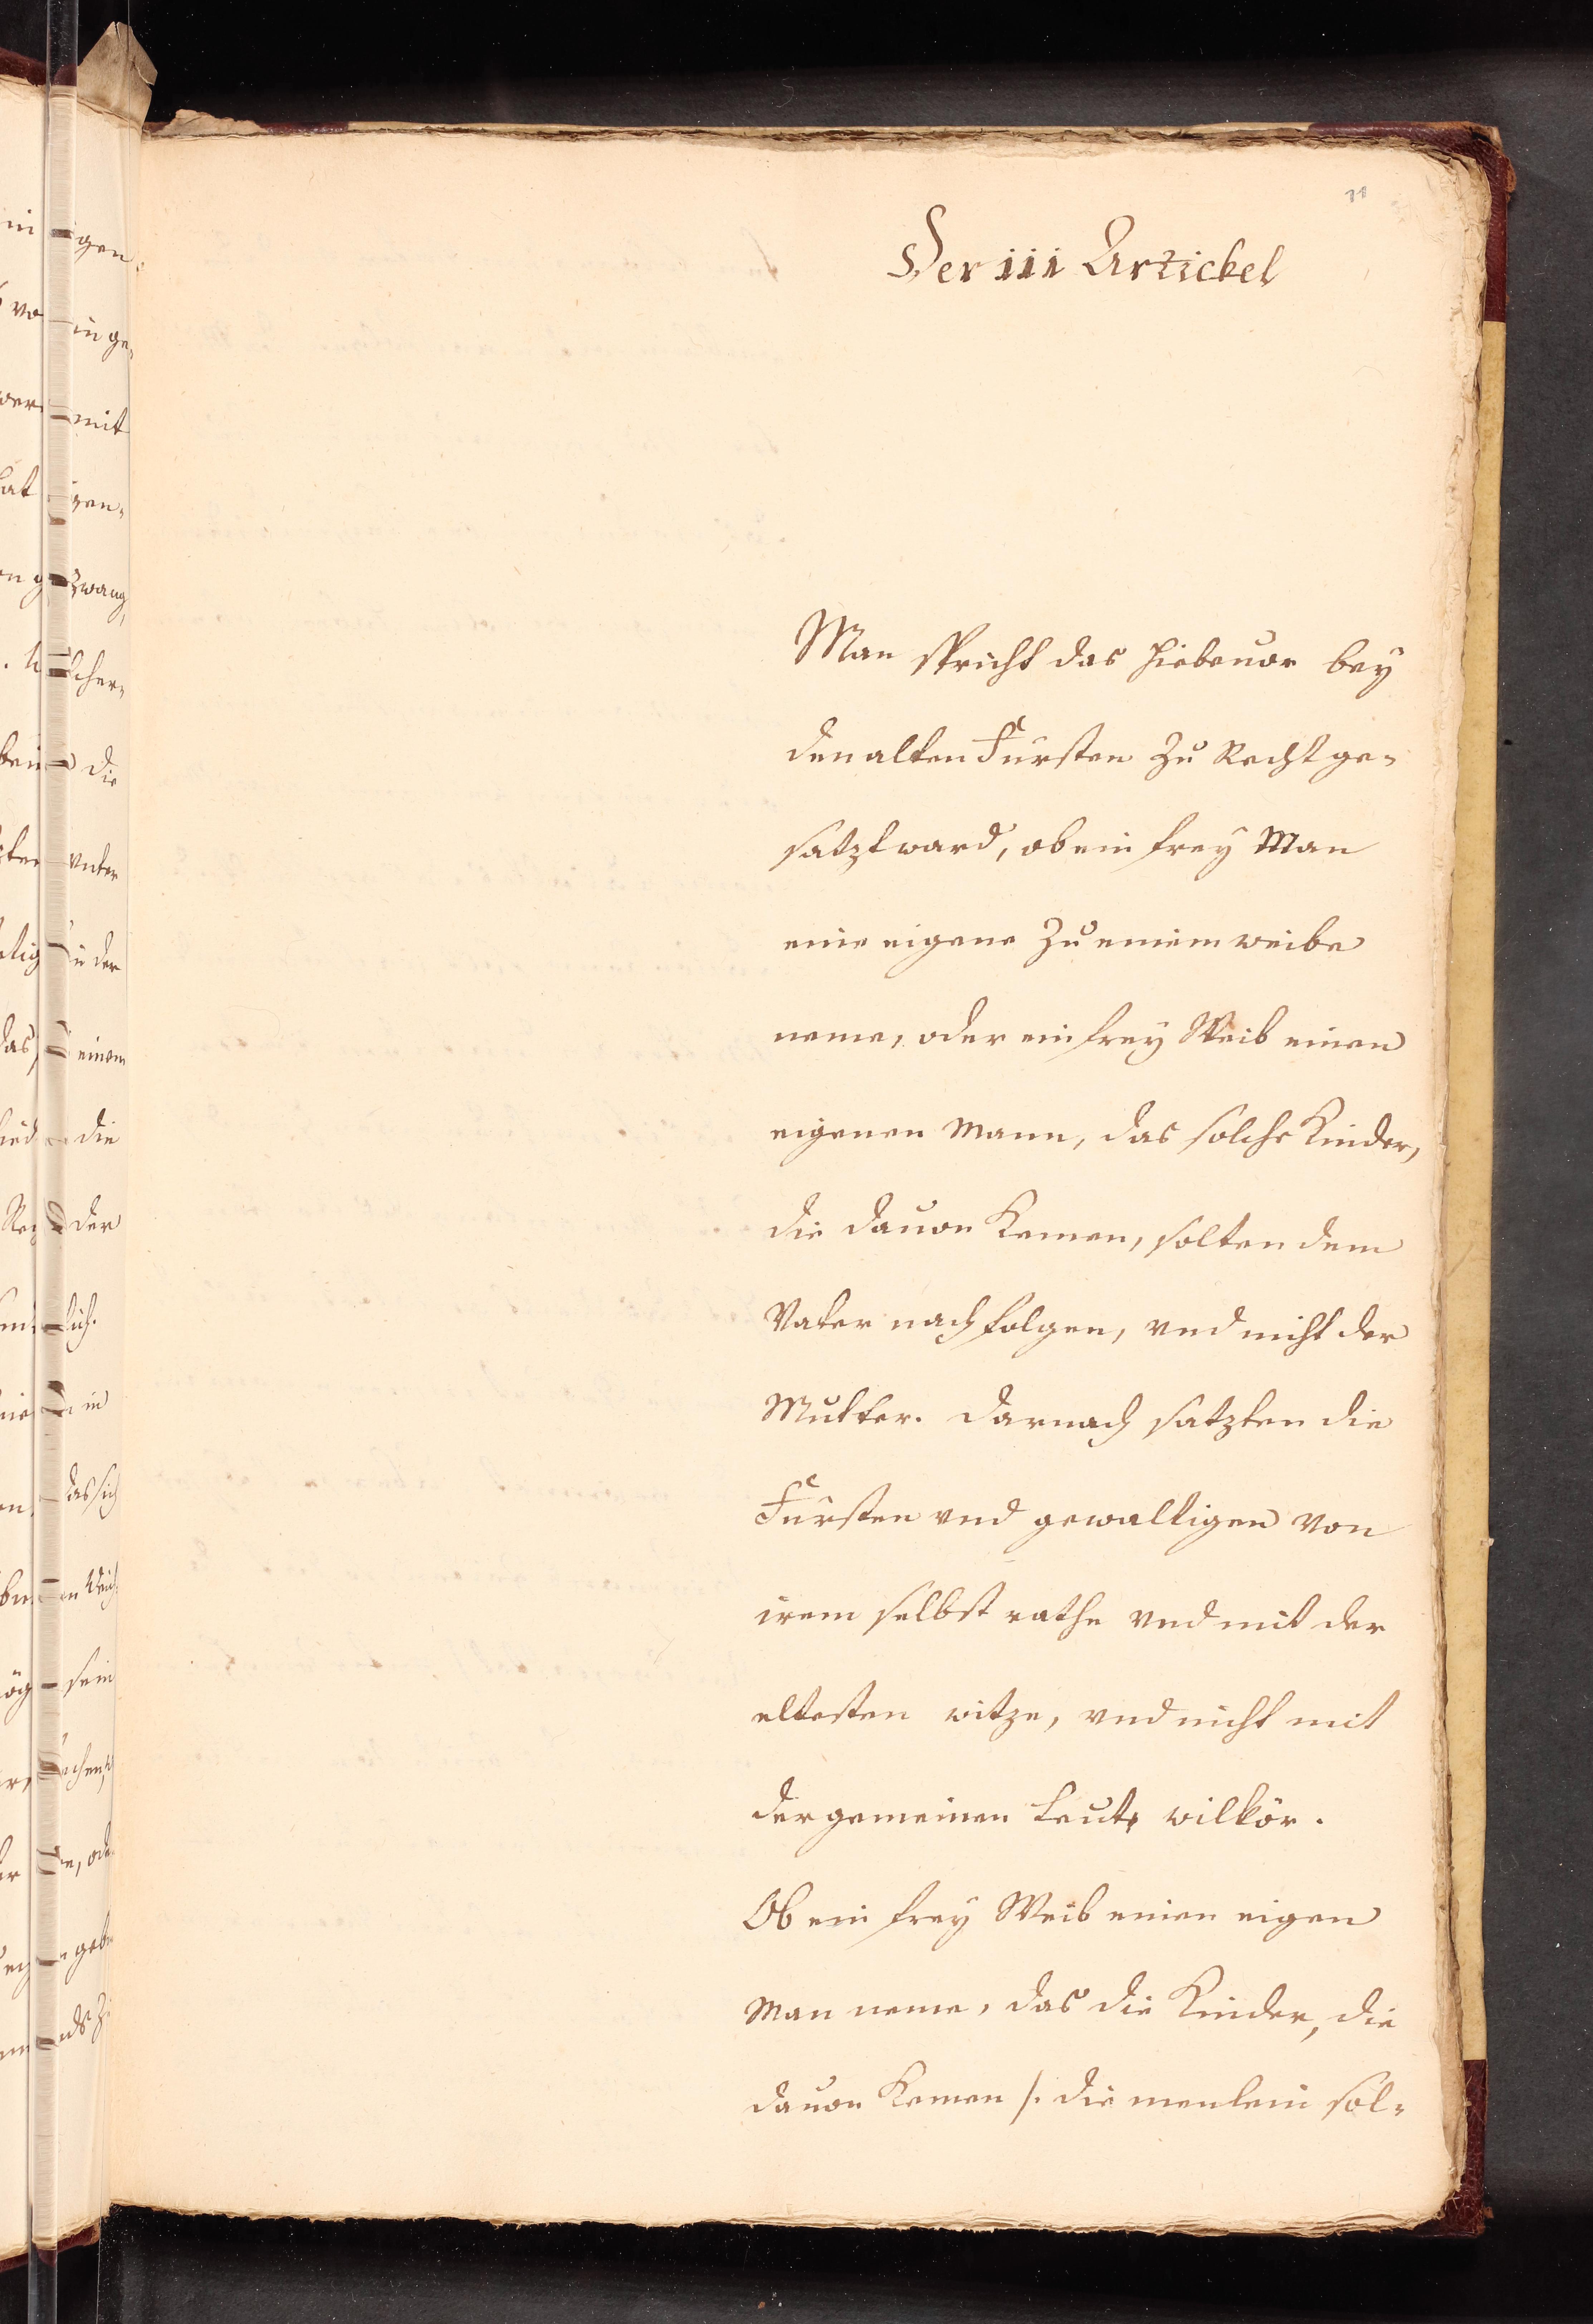 Der iii Artickel
Man spricht das hiebeuor bey
den alten Fürsten zu Recht ge-
satzt ward, ob ein frey Man
eine eigene zu einem weibe
neme, oder ein frey Weib einen
eigenen Mann, das solche Kinder,
die dauon kemen, solten dem
Vater nach folgen, vnd nicht der
Mutter. Darnach satzten die
Fürsten vnd gewaltigen von
irem selbst rathe vnd mit der
eltesten witze, vnd nicht mit
der gemeinen Leute wilkör.
Ob ein frey Weib einen eigen
Man neme, das die Kinder, die
dauon kemen /: die menlein sol-